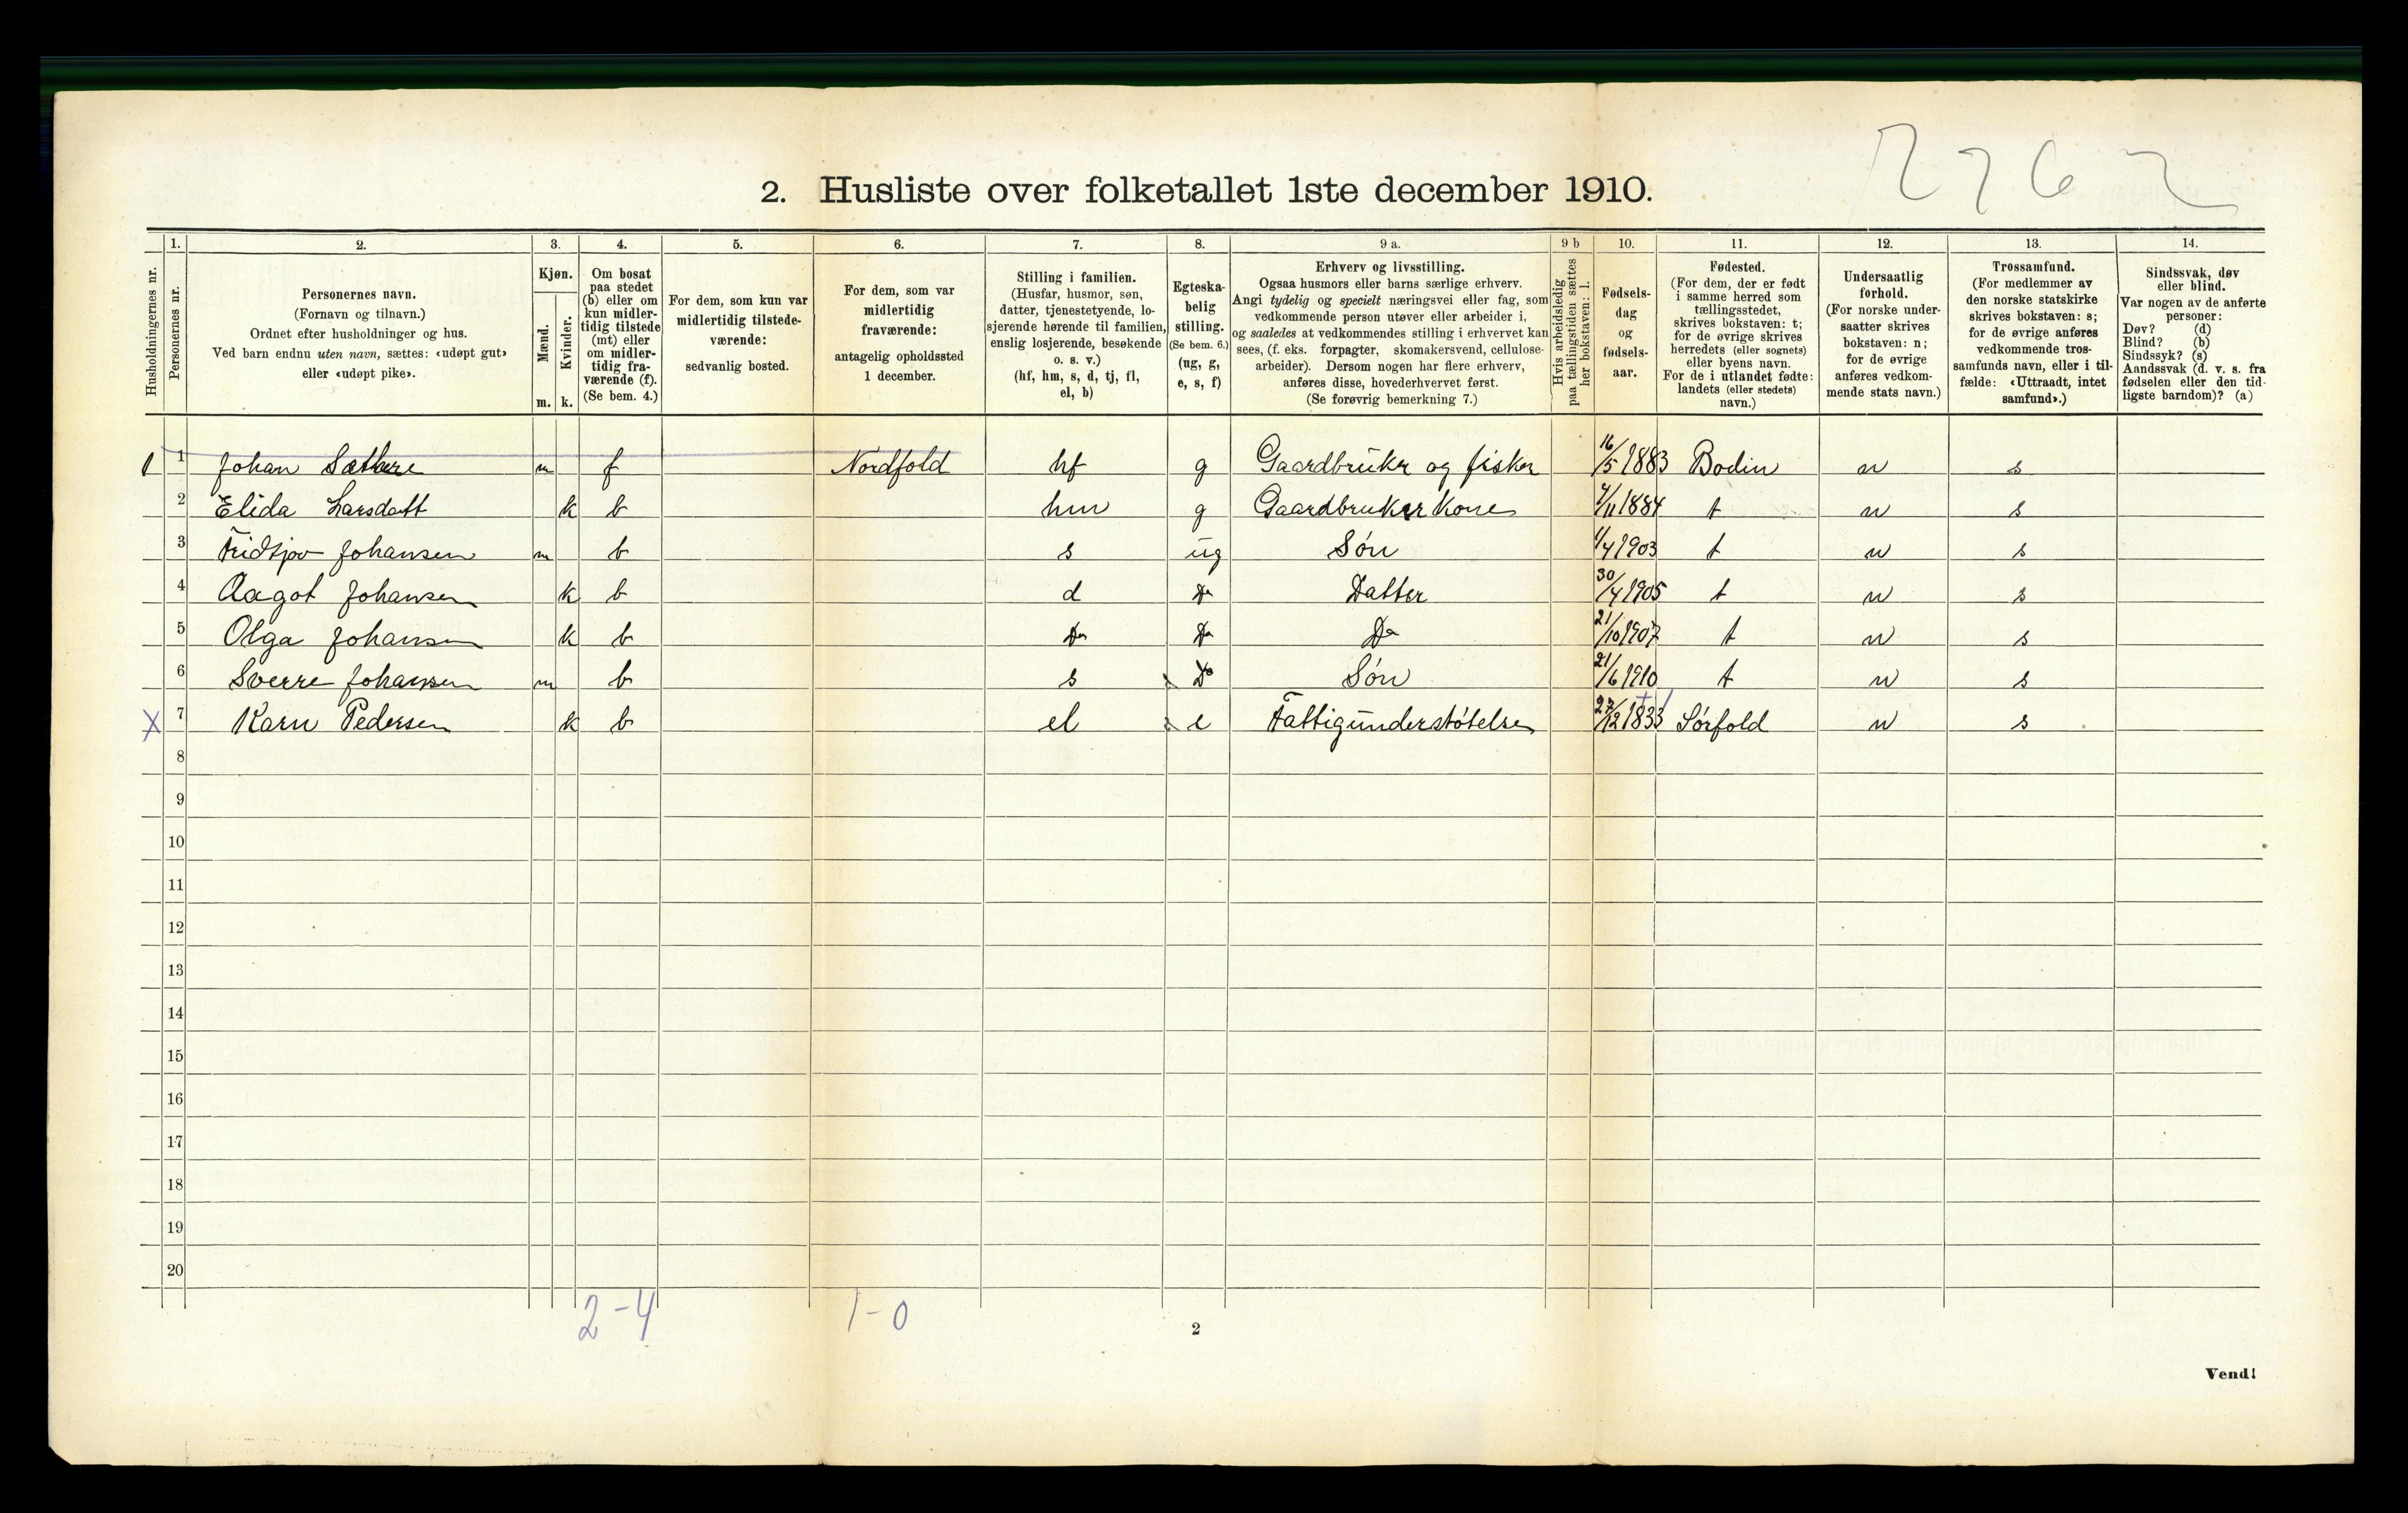 2262
2. Husliste over folketallet 1ste december 1910.
1. 2. 3. 4. 5. 6. 7. 8. 9 a. 9 b 10. 11. 12. 13. 14.
Husholdningernes nr.
Personernes nr.
Personernes navn.
(Fornavn og tilnavn.)
Ordnet efter husholdninger og hus.
Ved barn endnu uten navn, sættes: «udøpt gut»
eller «udøpt pike».
Kjøn.
Mænd.
Kvinder.
m. k.
Om bosat
paa stedet
(b) eller om
kun midler-
tidig tilstede
(mt) eller
om midler-
tidig fra-
værende (f).
(Se bem. 4.)
For dem, som kun var
midlertidig tilstede-
værende:
sedvanlig bosted.
For dem, som var
midlertidig
fraværende:
antagelig opholdssted
1 december.
Stilling i familien.
(Husfar, husmor, søn,
datter, tjenestetyende, lo-
sjerende hørende til familien,
enslig losjerende, besøkende
o. s. v.)
(hf, hm, s, d, tj, fl,
el, b)
Egteska-
belig
stilling.
(Se bem. 6.)
(ug, g,
e, s, f)
Erhverv og livsstilling.
Ogsaa husmors eller barns særlige erhverv.
Angi tydelig og specielt næringsvei eller fag, som
vedkommende person utøver eller arbeider i,
og saaledes at vedkommendes stilling i erhvervet kan
sees, (f. eks. forpagter, skomakersvend, cellulose-
arbeider). Dersom nogen har flere erhverv,
anføres disse, hovederhvervet først.
(Se forøvrig bemerkning 7.)
Hvis arbeidsledig
paa tællingstiden sættes
her bokstaven: l.
Fødsels-
dag
og
fødsels-
aar.
Fødested.
(For dem, der er født
i samme herred som
tællingsstedet,
skrives bokstaven: t;
for de øvrige skrives
herredets (eller sognets)
eller byens navn.
For de i utlandet fødte:
landets (eller stedets)
navn.)
Undersaatlig
forhold.
(For norske under-
saatter skrives
bokstaven: n;
for de øvrige
anføres vedkom-
mende stats navn.)
Trossamfund.
(For medlemmer av
den norske statskirke
skrives bokstaven: s;
for de øvrige anføres
vedkommende tros-
samfunds navn, eller i til-
fælde: «Uttraadt, intet
samfund».)
Sindssvak, døv
eller blind.
Var nogen av de anførte
personer:
Døv? (d)
Blind? (b)
Sindssyk? (s)
Aandssvak (d. v. s. fra
fødselen eller den tid-
ligste barndom)? (a)
1 1 Johan Sæthere m f Nordfold hf g Gaardbruker og fisker 16/5 1883 Bodin n s
2 Elida Larsdatt k b hm g Gaardbruker Kone 4/11 1884 t n s
3 Fridtjov Johansen m b s ug Søn 1/4 1903 t n s
4 Aagot Johansen k b d Do Datter 30/4 1905 t n s
5 Olga Johansen k b Do Do Do 21/10 1907 t n s
6 Sverre Johansen m b s Do Søn 21/6 1910 t n s
X 7 Karn Pedersen k b el e Fattigunderstøtelse 27/12 1833 Sørfold n s
8
9
10
11
12
13
14
15
16
17
18
19
20
2-4 1-0
2
Vend!